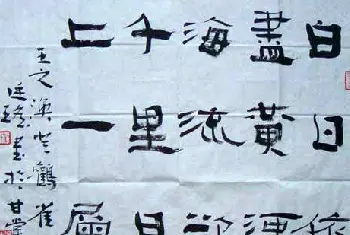 白日依
盡黃河
海流欲
千里目
上一層
王之渙登鶴雀
書於甘棠